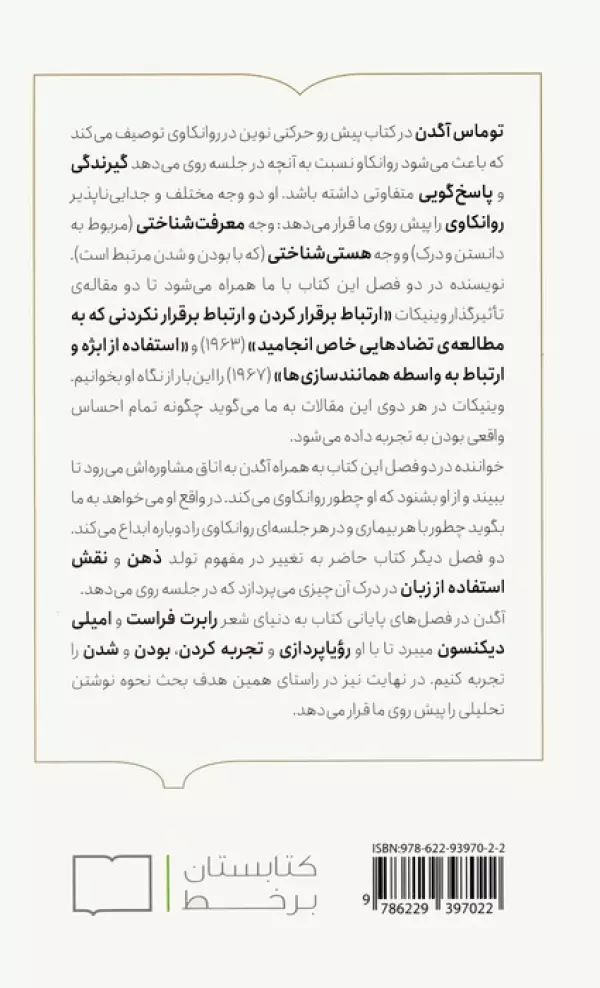 توماس آگدن در کتاب پیش رو حرکتی نوین در روانکاوی توصیف می‌کند
که باعث می‌شود روانکاو نسبت به آنچه در جلسه روی می‌دهد گیرندگی
و پاسخ‌گویی متفاوتی داشته باشد. او دو وجه مختلف و جدایی‌ناپذیر
روانکاوی را پیش روی ما قرار می‌دهد: وجه معرفت‌شناختی (مربوط به
دانستن و درک) و وجه هستی‌شناختی (که با بودن و شدن مرتبط است).
نویسنده در دو فصل این کتاب با ما همراه می‌شود تا دو مقاله‌ی
تأثیرگذار وینیکات «ارتباط برقرار کردن و ارتباط برقرار نکردنی که به
مطالعه‌ی تضادهایی خاص انجامید» (۱۹۶۳) و «استفاده از ابژه و
ارتباط به واسطه همانندسازی‌ها» (۱۹۶۷) را این بار از نگاه او بخوانیم.
وینیکات در هر دوی این مقالات به ما می‌گوید چگونه تمام احساس
واقعی بودن به تجربه داده می‌شود.
خواننده در دو فصل این کتاب به همراه آگدن به اتاق مشاوره‌اش می‌رود تا
ببیند و از او بشنود که او چطور روانکاوی می‌کند. در واقع او می‌خواهد به ما
بگوید چطور با هر بیماری و در هر جلسه‌ای روانکاوی را دوباره ابداع می‌کند.
دو فصل دیگر کتاب حاضر به تغییر در مفهوم تولد ذهن و نقش
استفاده از زبان در درک آن چیزی می‌پردازد که در جلسه روی می‌دهد.
آگدن در فصل‌های پایانی کتاب به دنیای شعر رابرت فراست و امیلی
دیکنسون میبرد تا با او رؤیاپردازی و تجربه کردن، بودن و شدن را
تجربه کنیم. در نهایت نیز در راستای همین هدف بحث نحوه نوشتن
تحلیلی را پیش روی ما قرار می‌دهد.
ISBN:978-622-93970-2-2
9 786229 397022
کتابستان
برخط